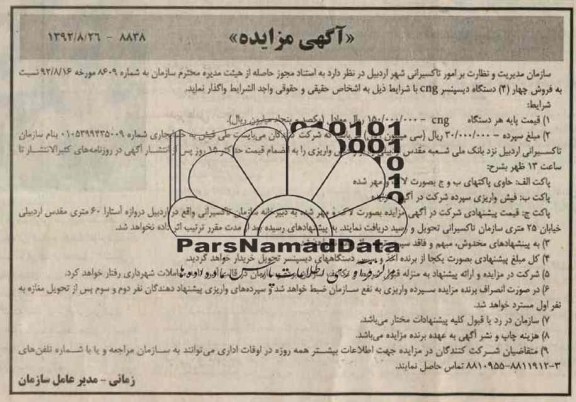 «آگهی مزایده»
۸۸۳۸ - ۱۳۹۲/۸/۲۶
سازمان مدیریت و نظارت بر امور تاکسیرانی شهر اردبیل در نظر دارد به استناد مجوز حاصله از هیئت مدیره محترم سازمان به شماره ۸۶۰۹ مورخه ۹۲/۸/۱۶ نسبت
به فروش چهار (۴) دستگاه دیسپنسر cng با شرایط ذیل به اشخاص حقیقی و حقوقی واجد الشرایط واگذار نماید.
شرایط:
۱) قیمت پایه هر دستگاه cng - ۱۵۰/۰۰۰/۰۰۰ ریال معادل (یکصد و پنجاه میلیون ریال).
۲) مبلغ سپرده - ۳۰/۰۰۰/۰۰۰ ریال (سی میلیون شرکت کنندگان می‌بایست طی فیش به جاری شماره ۰۱۰۵۳۹۹۲۳۵۰۰۹ بنام سازمان
تاکسیرانی اردبیل نزد بانک ملی شعبه مقدس واریزی را به انضمام قیمت حداکثر ۱۵ روز پس از انتشار آگهی در روزنامه‌های کثیرالانتشار تا
ساعت ۱۳ ظهر بشرح:
پاکت الف: حاوی پاکتهای ب و ج بصورت لاک و مهر شده
پاکت ب: فیش واریزی سپرده شرکت در آگهی
پاکت ج: قیمت پیشنهادی شرکت در آگهی مزایده بصورت لاک و مهر شده به دبیرخانه سازمان تاکسیرانی واقع در اردبیل دروازه آستارا ۶۰ متری مقدس اردبیلی
خیابان ۲۵ متری سازمان تاکسیرانی تحویل و رسید دریافت نمایند. به پیشنهادهای رسیده بعد از مدت مقرر ترتیب اثر داده نخواهد شد.
۳) به پیشنهادهای مخدوش، مبهم و فاقد
۴) کل مبلغ پیشنهادی بصورت یکجا از برنده اخذ و سپس دستگاههای دیسپنسر تحویل خریدار خواهد گردید.
۵) شرکت در مزایده و ارائه پیشنهاد به منزله قبول معاملات شهرداری رفتار خواهد کرد.
۶) در صورت انصراف برنده مزایده سپرده واریزی به نفع سازمان ضبط خواهد شد و سپرده‌های واریزی پیشنهاد دهندگان نفر دوم و سوم پس از تحویل مغازه به
نفر اول مسترد خواهد شد.
۷) سازمان در رد یا قبول کلیه پیشنهادات مختار می‌باشد.
۸) هزینه چاپ و نشر آگهی به عهده برنده مزایده می‌باشد.
۹) متقاضیان شرکت کنندگان در مزایده جهت اطلاعات بیشتر همه روزه در اوقات اداری می‌توانند به سازمان مراجعه و یا با شماره تلفن‌های
۸۸۱۰۹۵۵-۸۸۱۱۹۱۲-۳ تماس حاصل نمایند.
زمانی - مدیر عامل سازمان
ParsNamadData